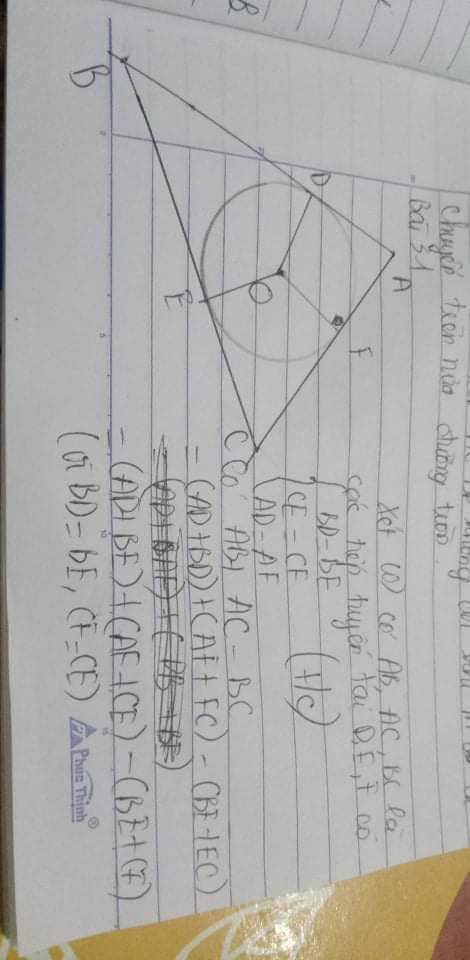 chuyển trên nửa đường tròn.
Bài 31
Xét (O) có AB, AC, BC là
các tiếp tuyến tại D, E, F có
BD = BE
CE = CF (t/c)
AD = AF
A
D
F
O
E
B
C
Có AB + AC - BC
= (AD + BD) + (AF + FC) - (BE + EC)
= (AD + BE) + (AF + CE) - (BE + CE)
(vì BD = BE, CF = CE)
Phúc Thịnh®